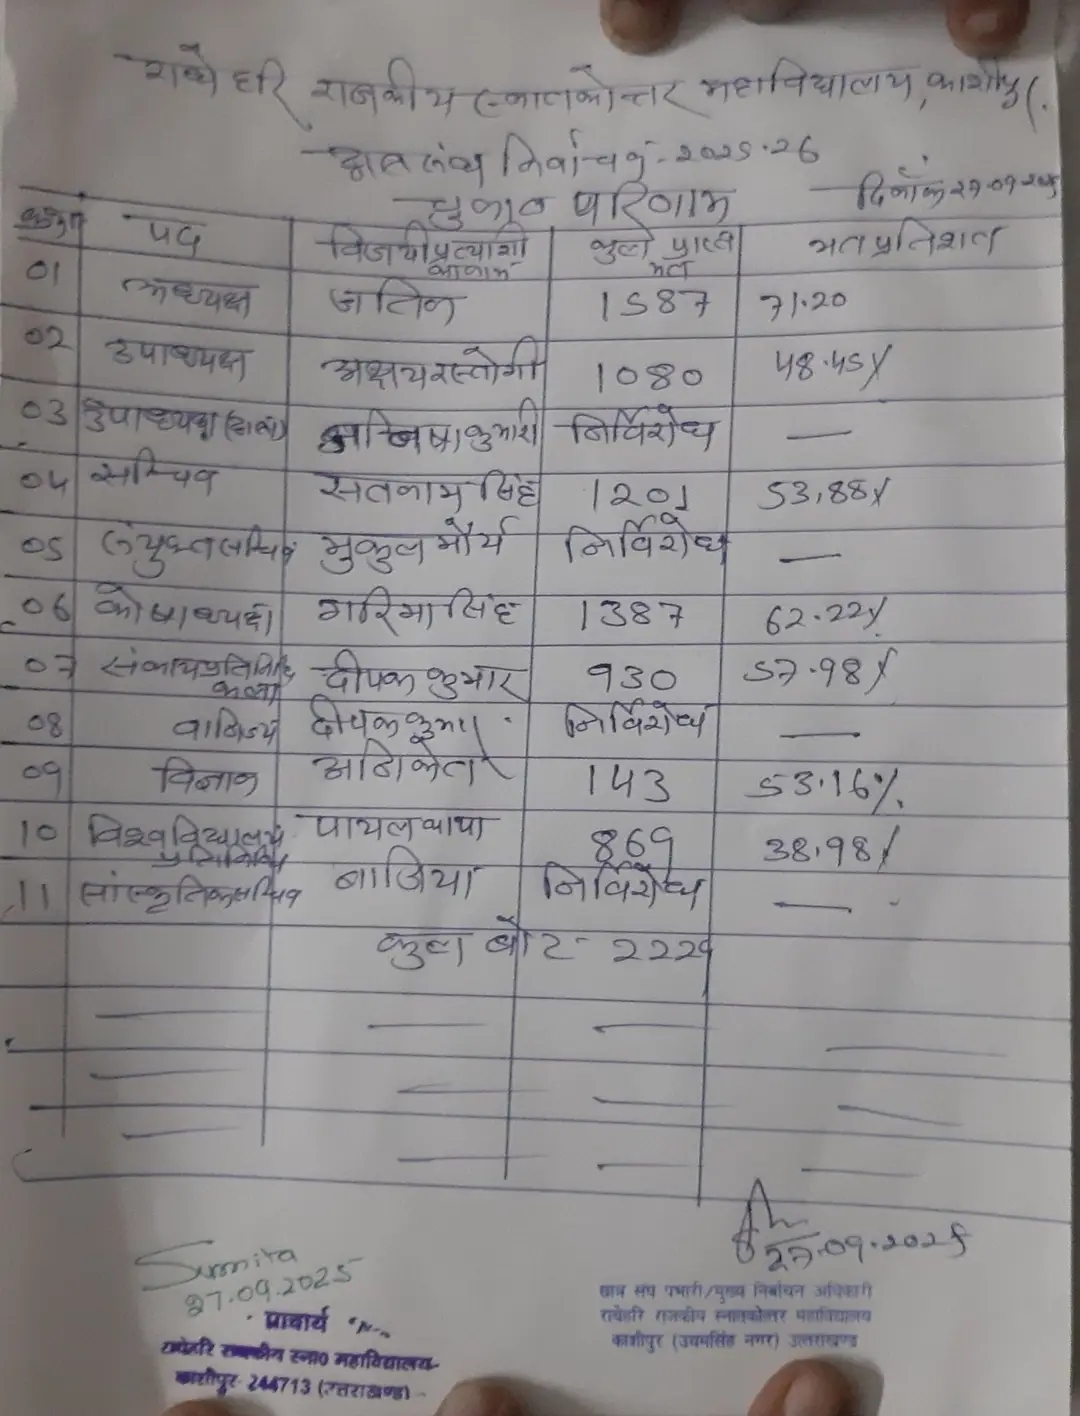 राधे हरि राजकीय स्नातकोत्तर महाविद्यालय, काशीपुर.
छात्र संघ निर्वाचन - 2025-26
चुनाव परिणाम दिनाँक 27-09-2025
पद विजयी प्रत्याशी का नाम कुल प्राप्त मत मत प्रतिशत
01 अध्यक्ष जतिन 1587 71.20
02 उपाध्यक्ष अक्षय रस्तोगी 1080 48.45%
03 उपाध्यक्ष कुमारी निर्विरोध —
04 सचिव सतनाम सिंह 1201 53.88%
05 संयुक्त सचिव मुकुल मौर्य निर्विरोध —
06 कोषाध्यक्ष गरिमा सिंह 1387 62.22%
07 संकाय प्रतिनिधि कला दीपक कुमार 930 57.98%
08 वाणिज्य दीपक कुमार निर्विरोध —
09 विज्ञान अनिकेत 143 53.16%
10 विश्वविद्यालय प्रतिनिधि पायल 869 38.98%
11 सांस्कृतिक सचिव नाजिया निर्विरोध —
कुल वोट - 2229
Sumita
27.09.2025
प्राचार्य
राधेहरि राजकीय स्ना0 महाविद्यालय
काशीपुर 244713 (उत्तराखण्ड)
27.09.2025
छात्र संघ प्रभारी/मुख्य निर्वाचन अधिकारी
राधेहरि राजकीय स्नातकोत्तर महाविद्यालय
काशीपुर (उधमसिंह नगर) उत्तराखण्ड